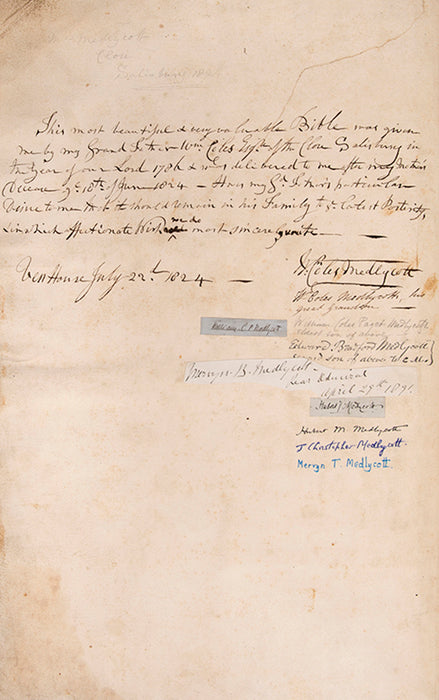 Medlycott
Close
Salisbury
This most beautiful & very valuable Bible was given
me by my Grand Father Wm. Coles Esqr. of the Close Salisbury in
the year of our Lord 1786 & was delivered to me after my
Decease ye. 10th of June 1824 — It was my Gd. Fathers particular
Desire to me that it should remain in his Family to ye. latest Posterity,
in which affectionate Wish most sincerely
Ven House July 22d. 1824 —
W. Coles Medlycott
W. Coles Medlycott, his
great grandson
William Coles Paget Medlycott
eldest son of above
William C. P. Medlycott
Edward Bradford Medlycott
son of above
Mervyn B. Medlycott
Rear Admiral
April 29th 1891
Hubert J. Medlycott
Hubert M. Medlycott
T Christopher Medlycott.
Mervyn T. Medlycott.